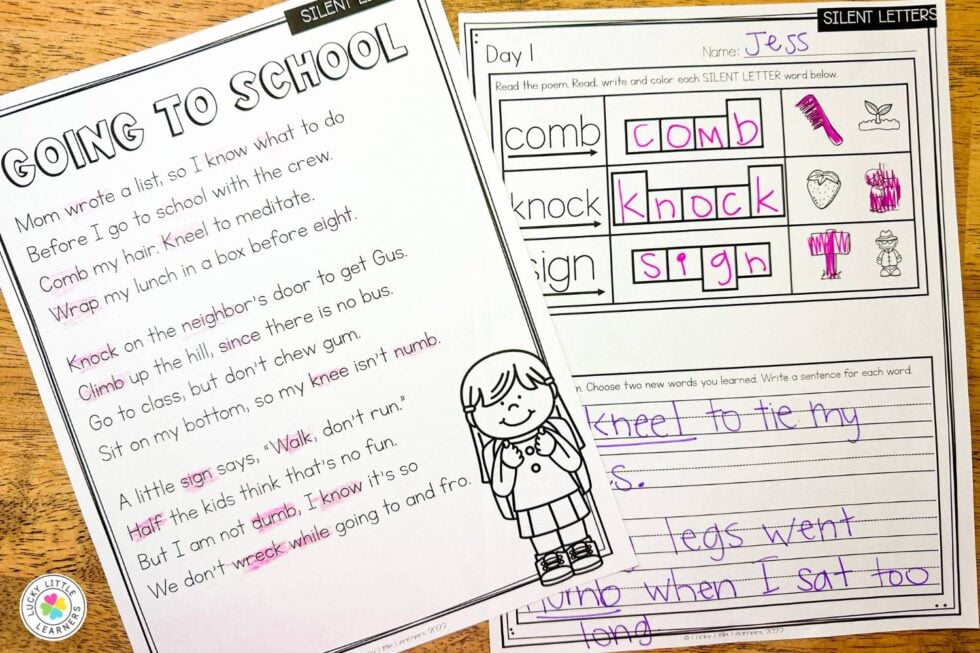 SILENT LET
GOING TO SCHOOL
Mom wrote a list, so I know what to do
Before I go to school with the crew.
Comb my hair. Kneel to meditate.
Wrap my lunch in a box before eight.
Knock on the neighbor's door to get Gus.
Climb up the hill, since there is no bus.
Go to class, but don't chew gum.
Sit on my bottom, so my knee isn't numb.
A little sign says, "Walk, don't run."
Half the kids think that's no fun.
But I am not dumb, I know it's so
We don't wreck while going to and fro.
LUCKY LITTLE
LEARNERS
SILENT LETTERS
Day 1
Name: Jess
Read the poem. Read, write and color each SILENT LETTER word below.
comb comb
knock knock
sign sign
m. Choose two new words you learned. Write a sentence for each word.
kneel to tie my
s.
legs went
numb when I sat too
long
© Lucky Little Learners 2022